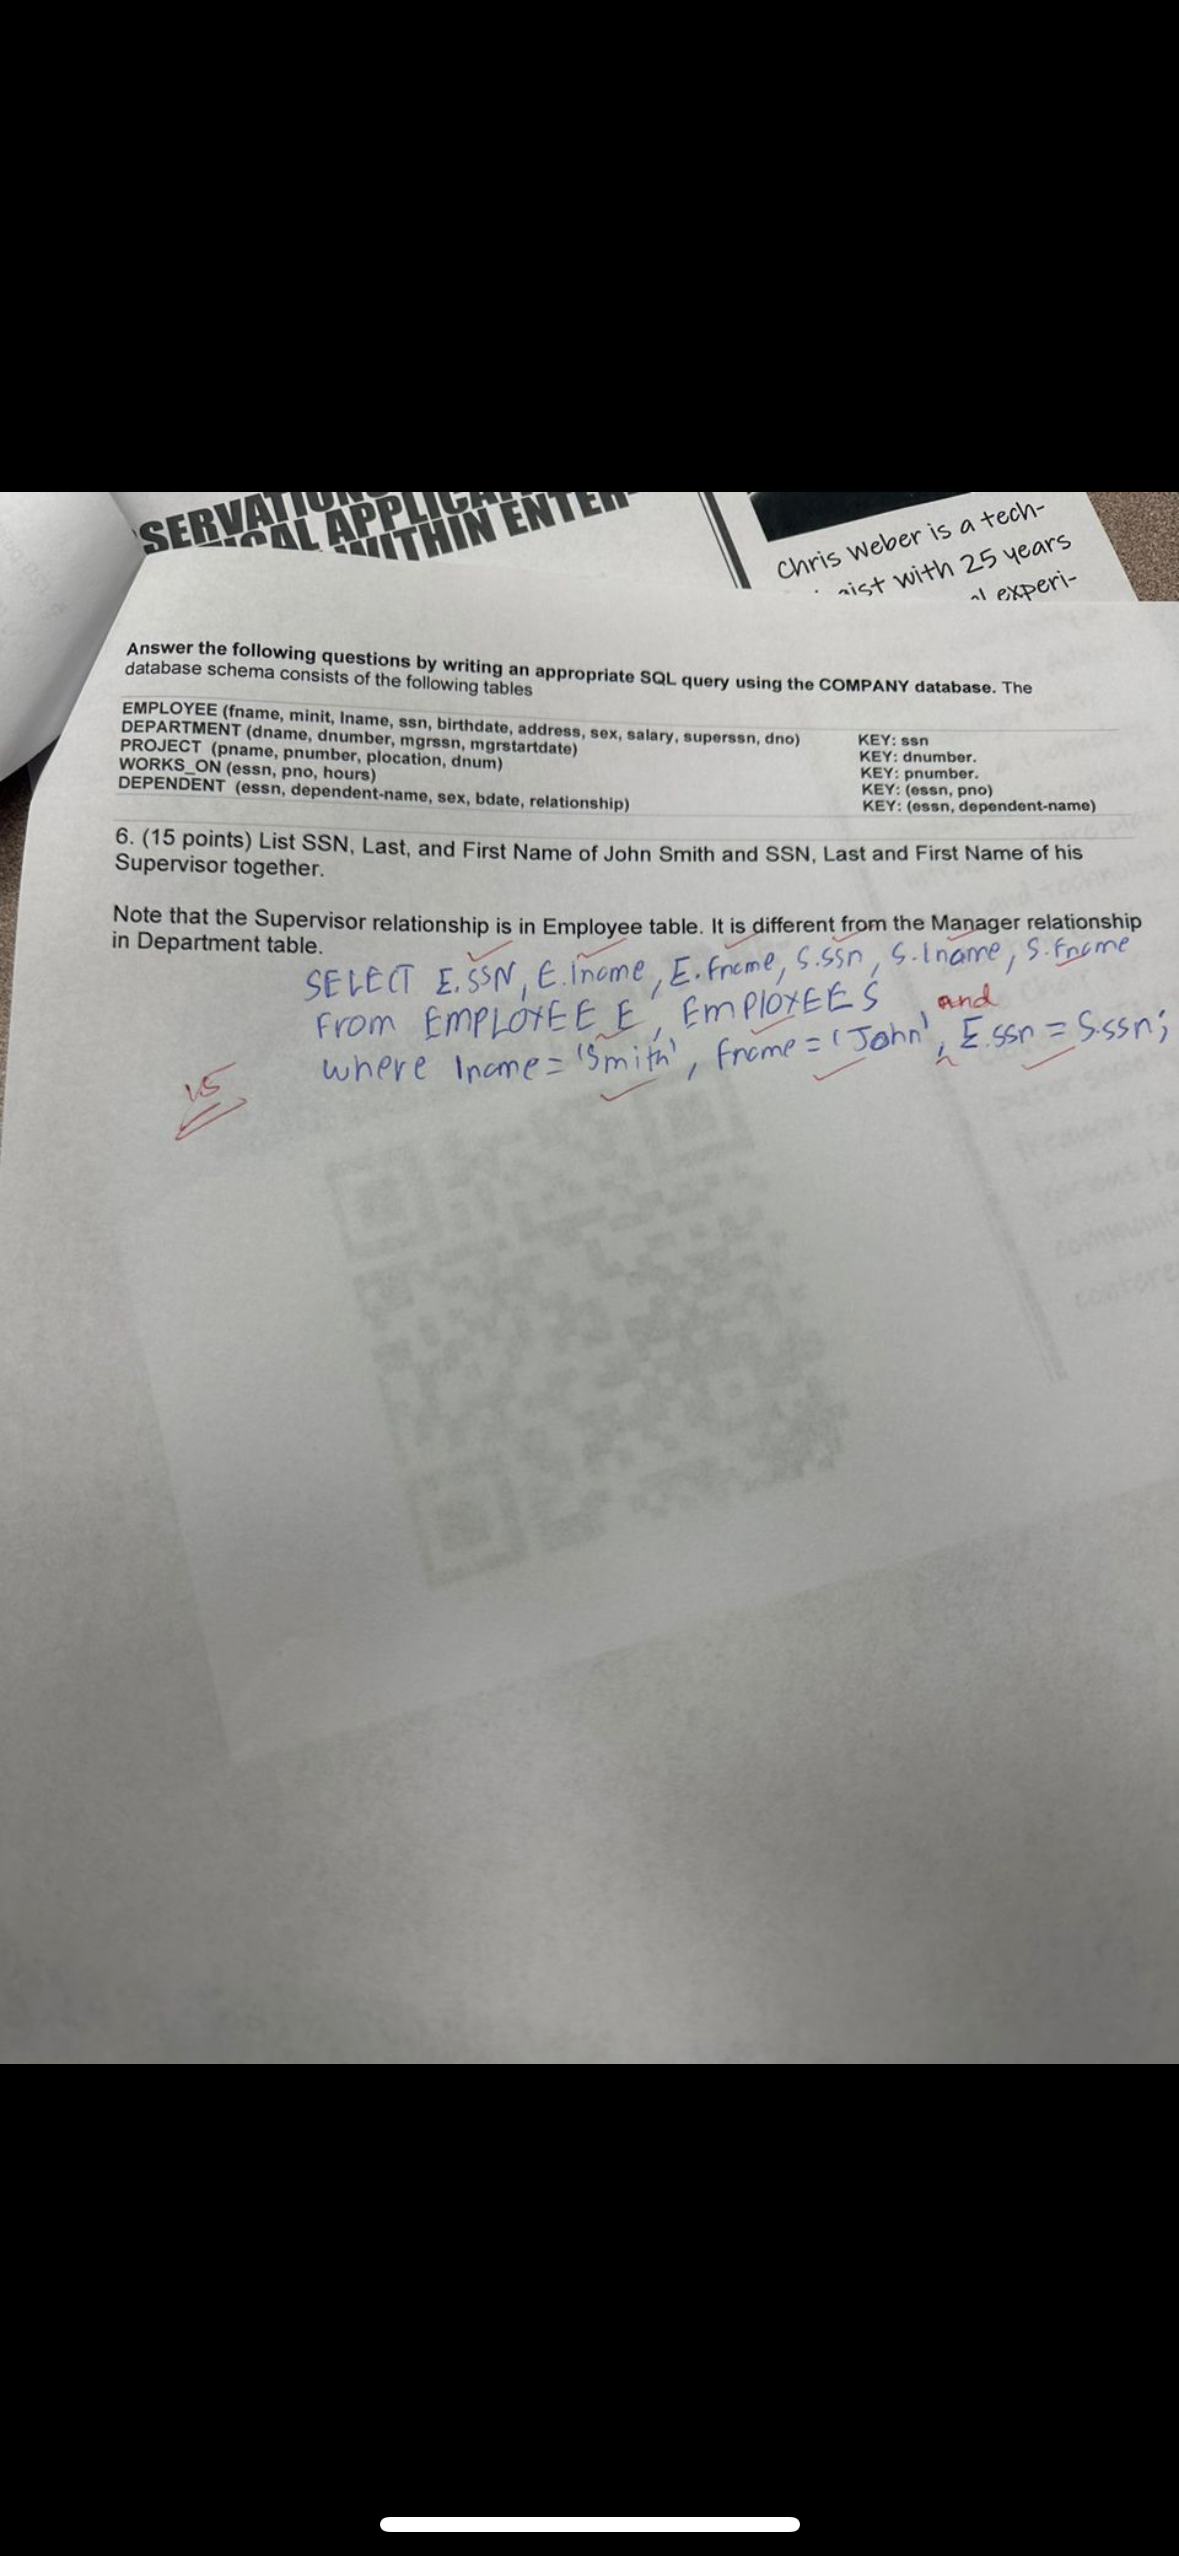 SERVATION
ICAL APPLICAT
WITHIN ENTER
Chris Weber is a tech-
with 25 years
experi-
Answer the following questions by writing an appropriate SQL query using the COMPANY database. The
database schema consists of the following tables
EMPLOYEE (fname, minit, lname, ssn, birthdate, address, sex, salary, superssn, dno) KEY: ssn
DEPARTMENT (dname, dnumber, mgrssn, mgrstartdate) KEY: dnumber.
PROJECT (pname, pnumber, plocation, dnum) KEY: pnumber.
WORKS_ON (essn, pno, hours) KEY: (essn, pno)
DEPENDENT (essn, dependent-name, sex, bdate, relationship) KEY: (essn, dependent-name)
6. (15 points) List SSN, Last, and First Name of John Smith and SSN, Last and First Name of his
Supervisor together.
Note that the Supervisor relationship is in Employee table. It is different from the Manager relationship
in Department table.
SELECT E.SSN, E.lname, E.fname, S.ssn, S.lname, S.fname
From EMPLOYEE E, EMPLOYEE S
and
where lname = 'Smith', fname = 'John', E.ssn = S.ssn;
15